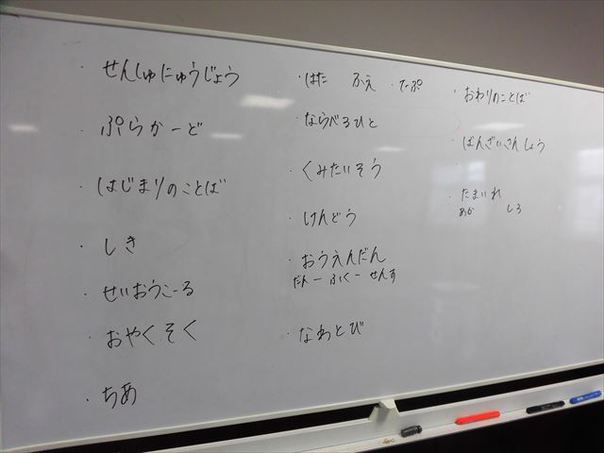 ・せんしゅにゅうじょう
・ぷらかーど
・はじまりのことば
・しき
・せいおうこーる
・おやくそく
・ちあ
・はた ふえ ・たっぷ
・ならべるひと
・くみたいそう
・けんどう
・おうえんだん
だんー ふくー せんす
・なわとび
・おわりのことば
・ばんざいさんしょう
・たまいれ
あか しろ